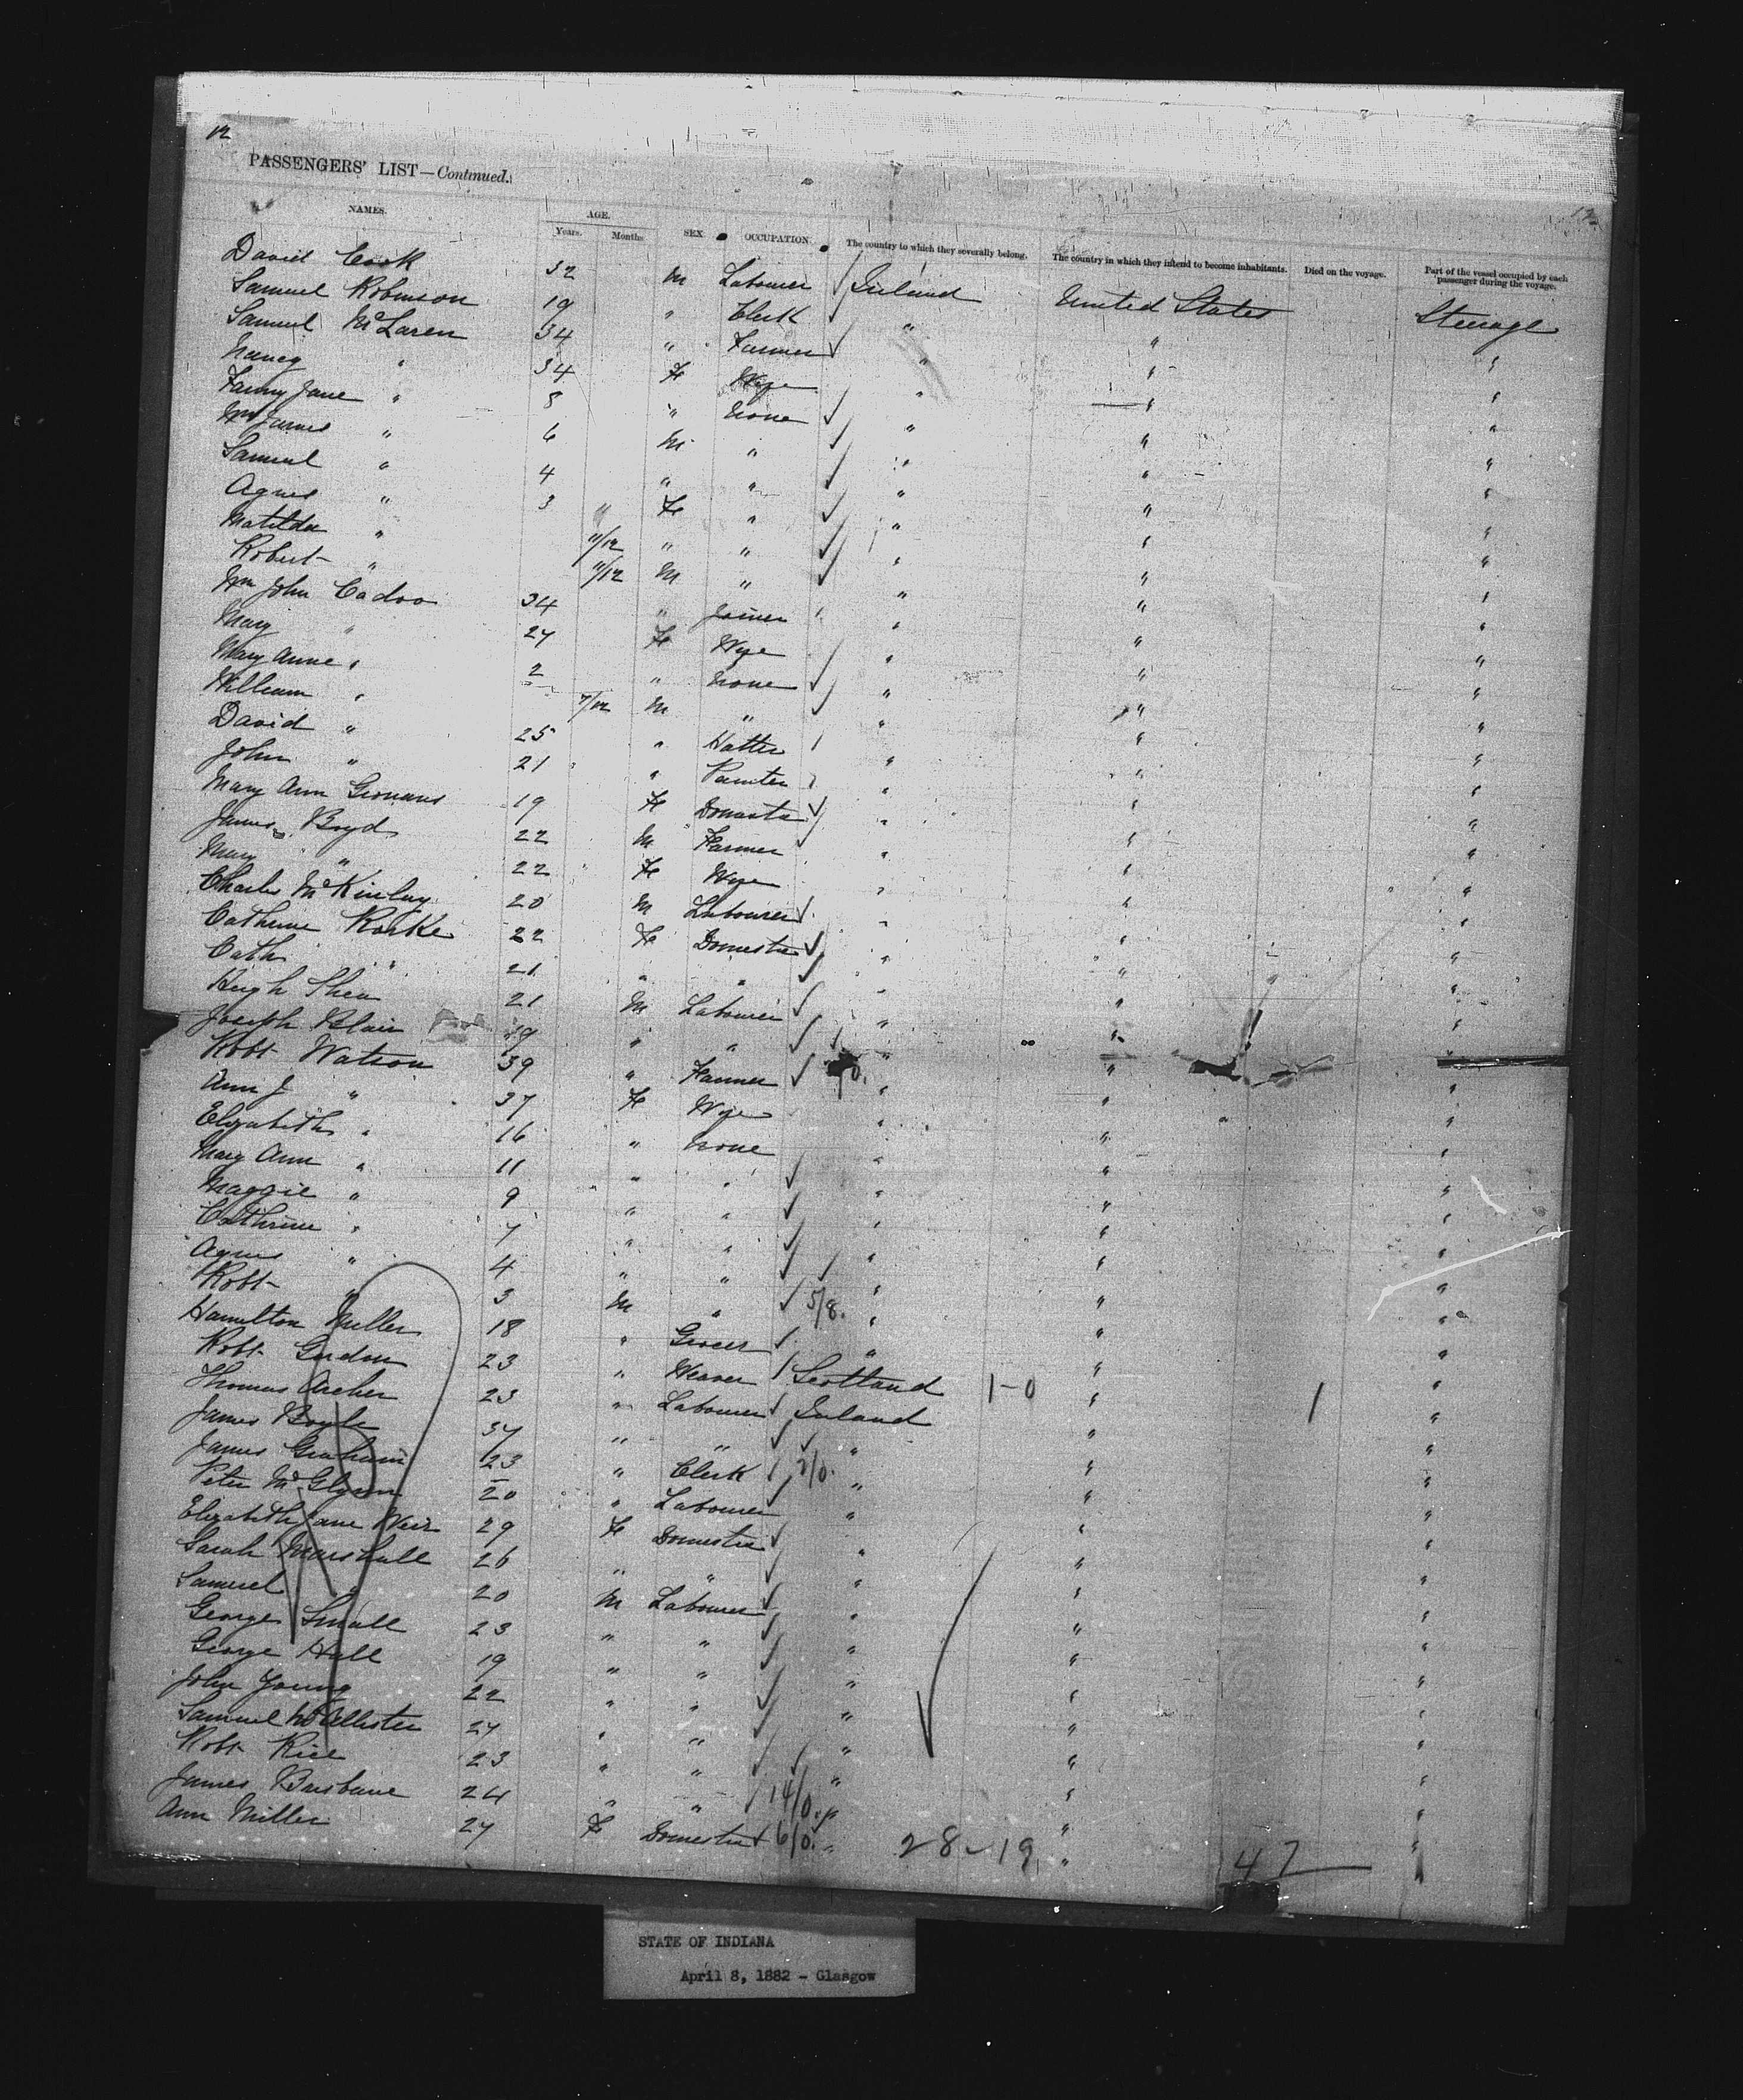 12
12
PASSENGERS' LIST—Continued.
NAMES. AGE. Years. Months SEX. OCCUPATION. The country to which they severally belong. The country in which they intend to become inhabitants. Died on the voyage. Part of the vessel occupied by each passenger during the voyage.
David Cook 32 M Labourer Ireland United States Steerage
Samuel Robinson 19 " Clerk " " "
Samuel McLaren 34 " Farmer " " "
Nancy " 34 Fe Wife " " "
Fanny Jane " 8 " None " " "
Wm James " 6 M " " " "
Samuel " 4 " " " " "
Agnes " 3 Fe " " " "
Matilda " 11/12 " " " " "
Robert " 11/12 M " " " "
Wm John Cadoo 34 " Joiner " " "
Mary " 27 Fe Wife " " "
Mary Anne " 2 " None " " "
William " 7/12 M " " " "
David " 25 " Hatter " " "
John " 21 " Painter " " "
Mary Ann 19 Fe Domestic " " "
James Boyd 22 M Farmer " " "
Mary " 22 Fe Wife " " "
Charles McKinley 20 M Labourer " " "
Catherine Rorke 22 Fe Domestic " " "
Cath " 21 " " " " "
Hugh Shea 21 M Labourer " " "
Joseph Blair " " " " "
Robt Watson 39 " Farmer " " "
Ann J " 37 Fe Wife " " "
Elizabeth " 16 " None " " "
Mary Ann " 11 " " " " "
Maggie " 9 " " " " "
Cathrine " 7 " " " " "
Agnes " 4 " " " " "
Robt " 3 M " 5/8. " " "
Hamilton Miller 18 " Grocer " " "
Robt Gordon 23 " Weaver Scotland 1-0 " "
Thomas Archer 23 " Labourer Ireland " 1 "
James Boyle 37 " " " " "
James Graham 23 " Clerk 2/0. " " "
Peter McGlynn 20 " Labourer " " "
Elizabeth Jane Weir 29 Fe Domestic " " "
Sarah Marshall 26 " " " " "
Samuel " 20 M Labourer " " "
George Small 23 " " " " "
George Hall 19 " " " " "
John Young 22 " " " " "
Samuel McAllister 27 " " " " "
Robt Rice 23 " " " " "
James Brisbane 24 " " 14/0. " " "
Ann Miller 27 Fe Domestic 6/0. " 28-19 " 47 "
STATE OF INDIANA
April 8, 1882 - Glasgow